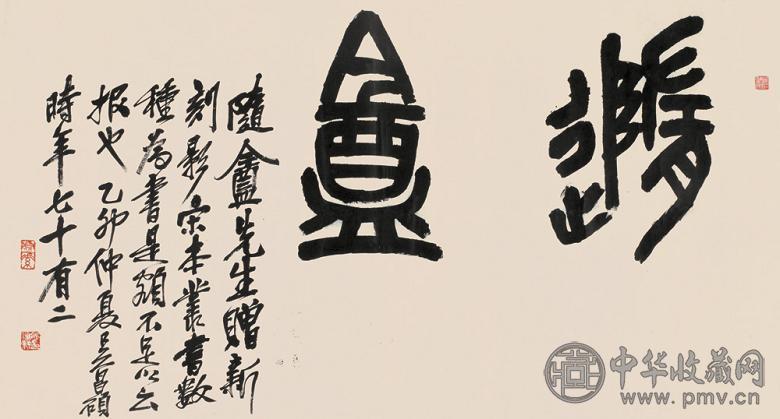 隨盦
隨盦先生贈新
刻影宋本叢書數
種為書是額不足以云
报也乙卯仲夏吳昌碩
時年七十有二
中华收藏网
www.pmv.cn